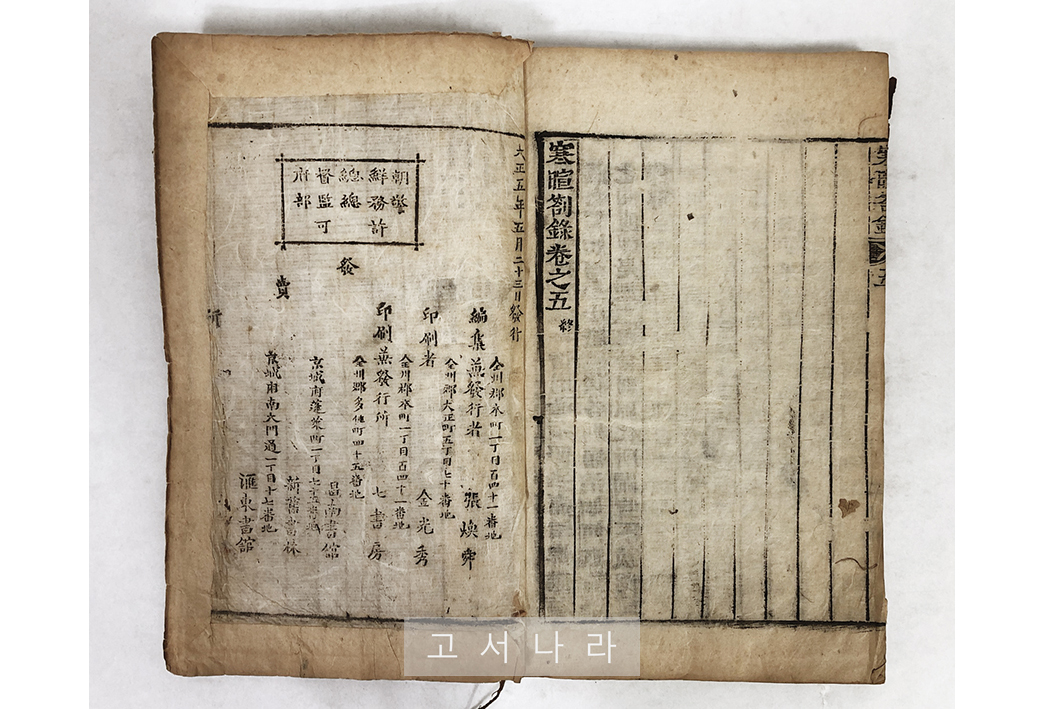 寒暄劄錄卷之五
終
大正五年五月二十三日發行
朝鮮總督府
警務總監部
許可
編集兼發行者
全州郡本町一丁目百四十一番地
張煥舜
印刷者
全州郡大正町五丁目七十番地
金光秀
印刷兼發行所
全州郡本町一丁目百四十一番地
七書房
發賣所
全州郡多佳町四十五番地
昌南書館
京城府蓬萊町一丁目七十五番地
新舊書林
京城府南大門通一丁目十七番地
滙東書館
고서나라